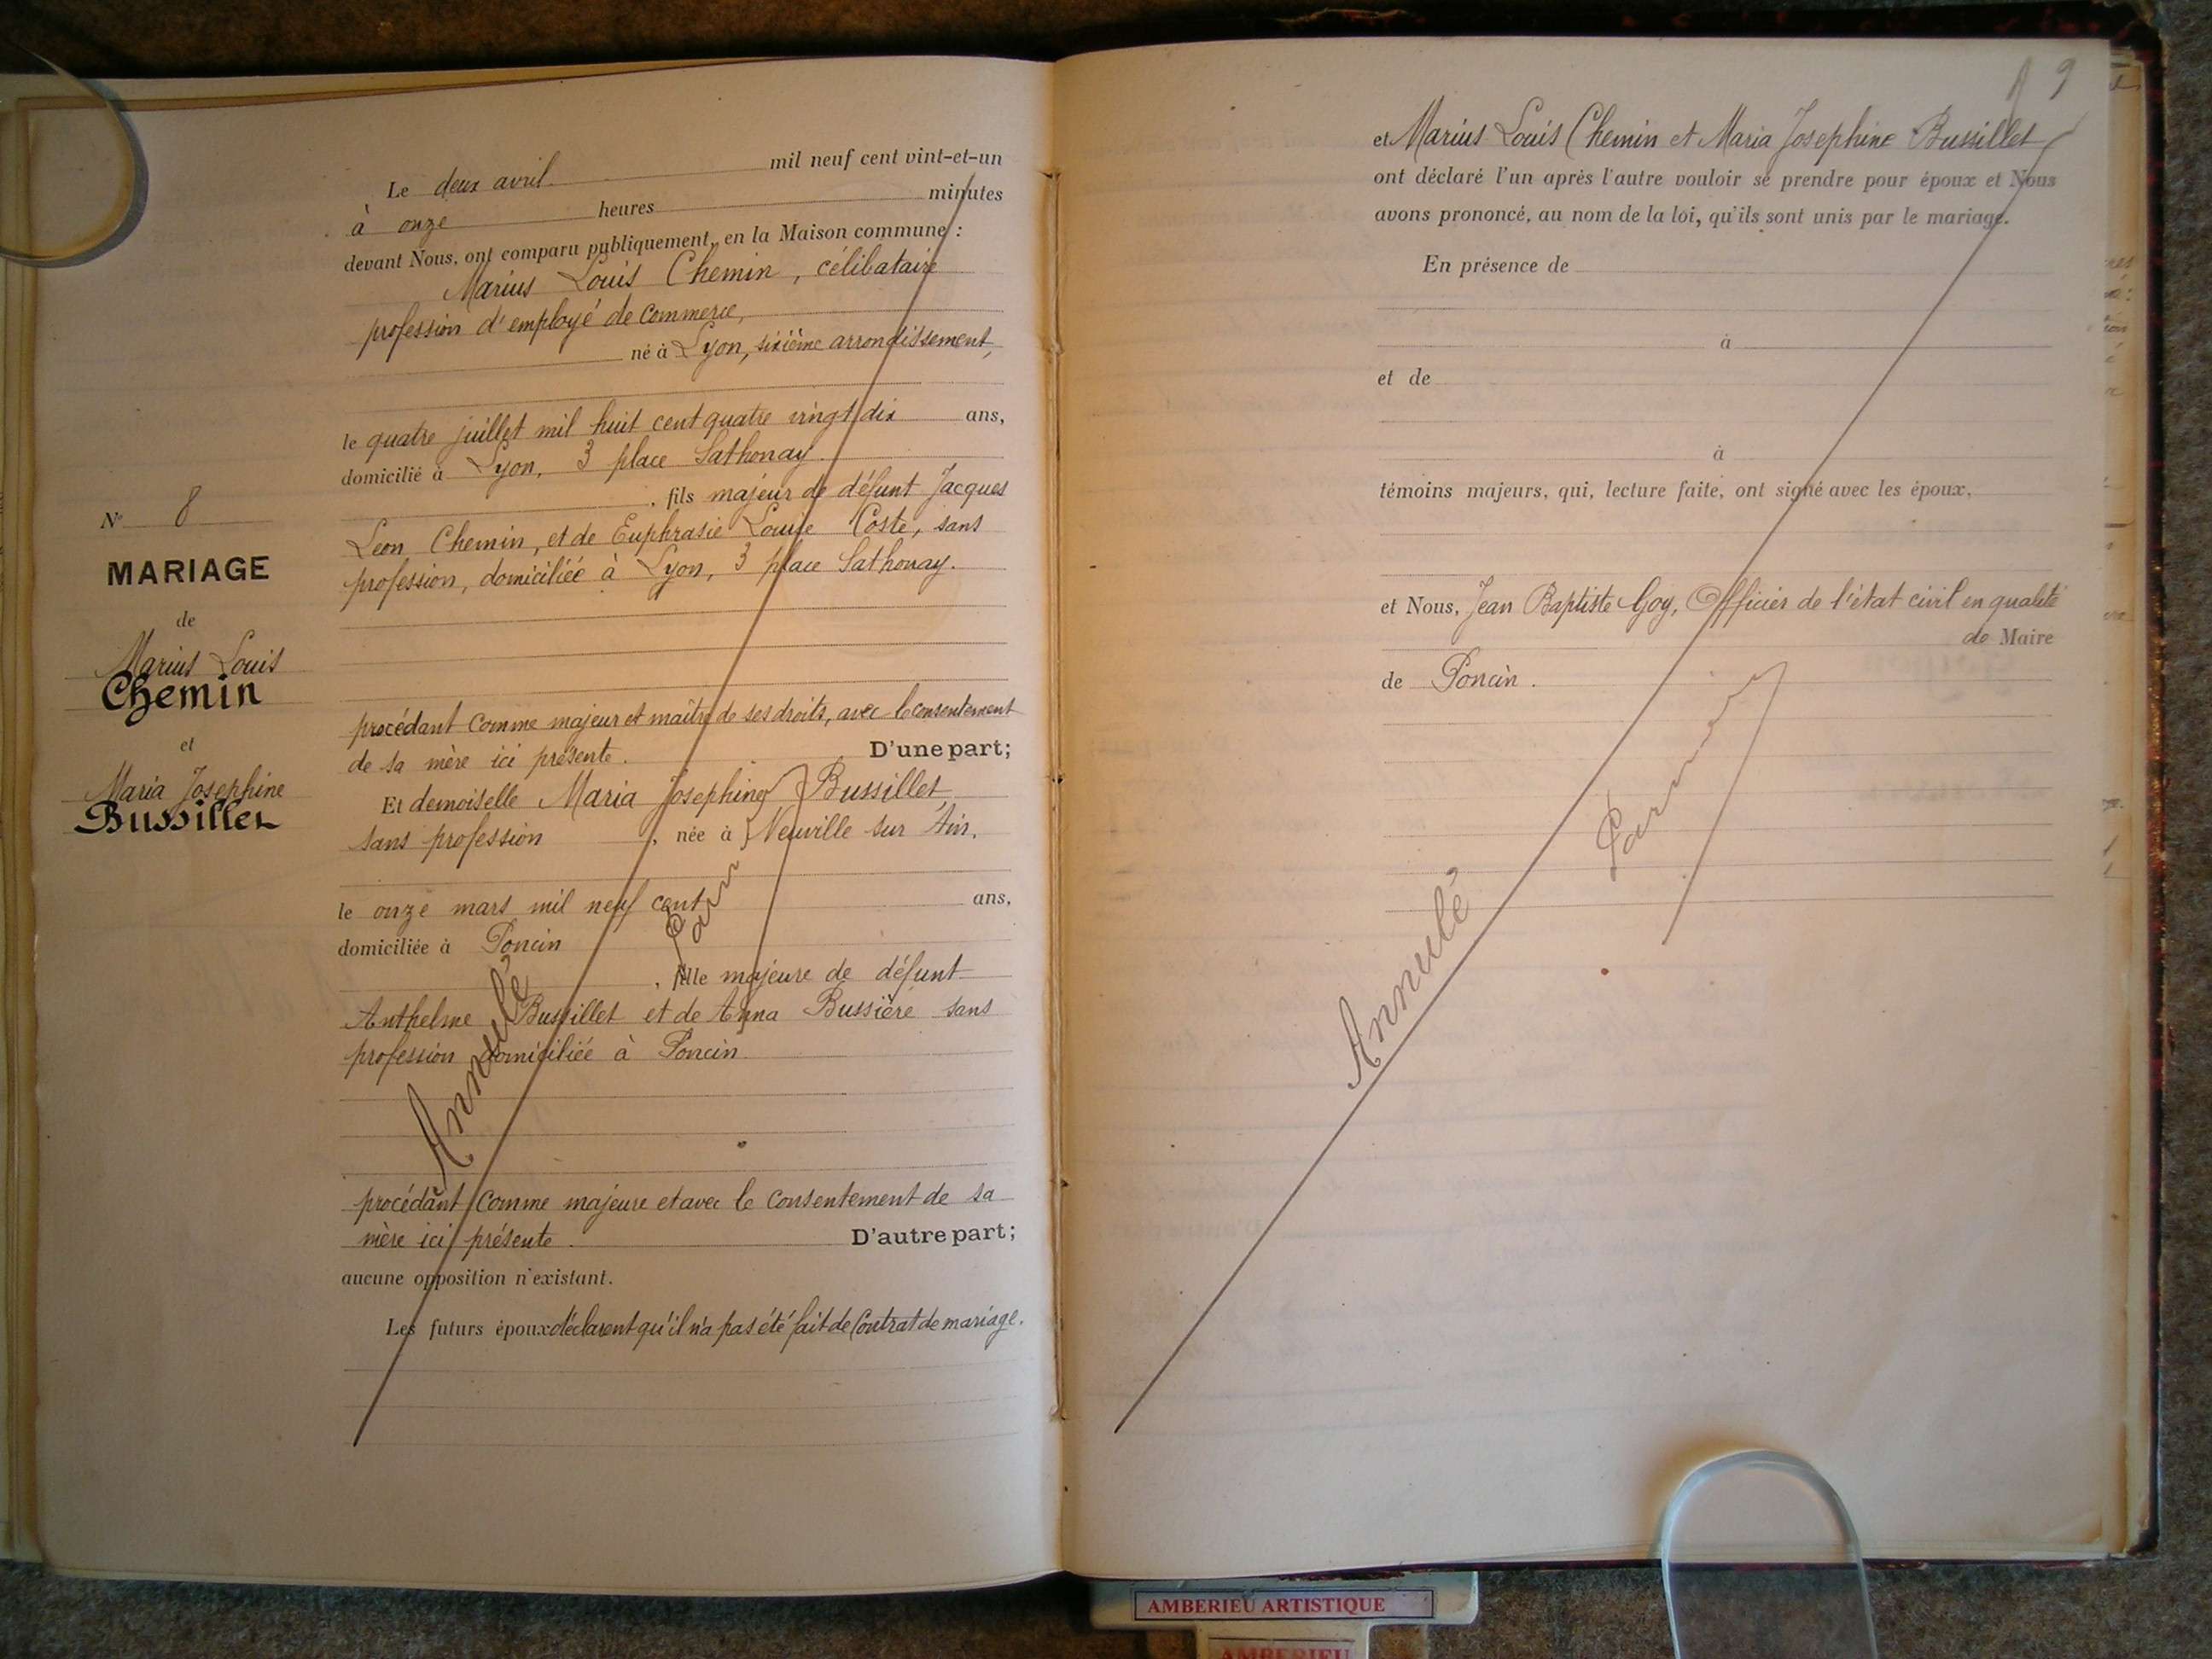 N° 8
MARIAGE
de
Marius Louis
Chemin
et
Maria Josephine
Bussillet
Le deux avril mil neuf cent vint-et-un
à onze heures minutes
devant Nous, ont comparu publiquement, en la Maison commune :
Marius Louis Chemin, célibataire
profession d'employé de commerce,
né à Lyon, sixième arrondissement,
le quatre juillet mil huit cent quatre vingt dix ans,
domicilié à Lyon, 3 place Sathonay.
, fils majeur de défunt Jacques
Leon Chemin, et de Euphrasie Louise Coste, sans
profession, domiciliée à Lyon, 3 place Sathonay.
procédant comme majeur et maître de ses droits, avec le consentement
de sa mère ici présente. D'une part;
Et demoiselle Maria Josephine Bussillet,
sans profession, née à Neuville sur Ain,
le onze mars mil neuf cent ans,
domiciliée à Poncin
, fille majeure de défunt
Anthelme Bussillet et de Anna Bussière sans
profession domiciliée à Poncin.
Annulé
procédant comme majeure et avec le consentement de sa
mère ici présente. D'autre part;
aucune opposition n'existant.
Les futurs époux déclarent qu'il n'a pas été fait de Contrat de mariage.
9
et Marius Louis Chemin et Maria Josephine Bussillet
ont déclaré l'un après l'autre vouloir se prendre pour époux et Nous
avons prononcé, au nom de la loi, qu'ils sont unis par le mariage.
En présence de
à
et de
à
témoins majeurs, qui, lecture faite, ont signé avec les époux,
et Nous, Jean Baptiste Goy, Officier de l'état civil en qualité
de Maire
de Poncin.
Annulé
AMBERIEU ARTISTIQUE
AMBERIEU